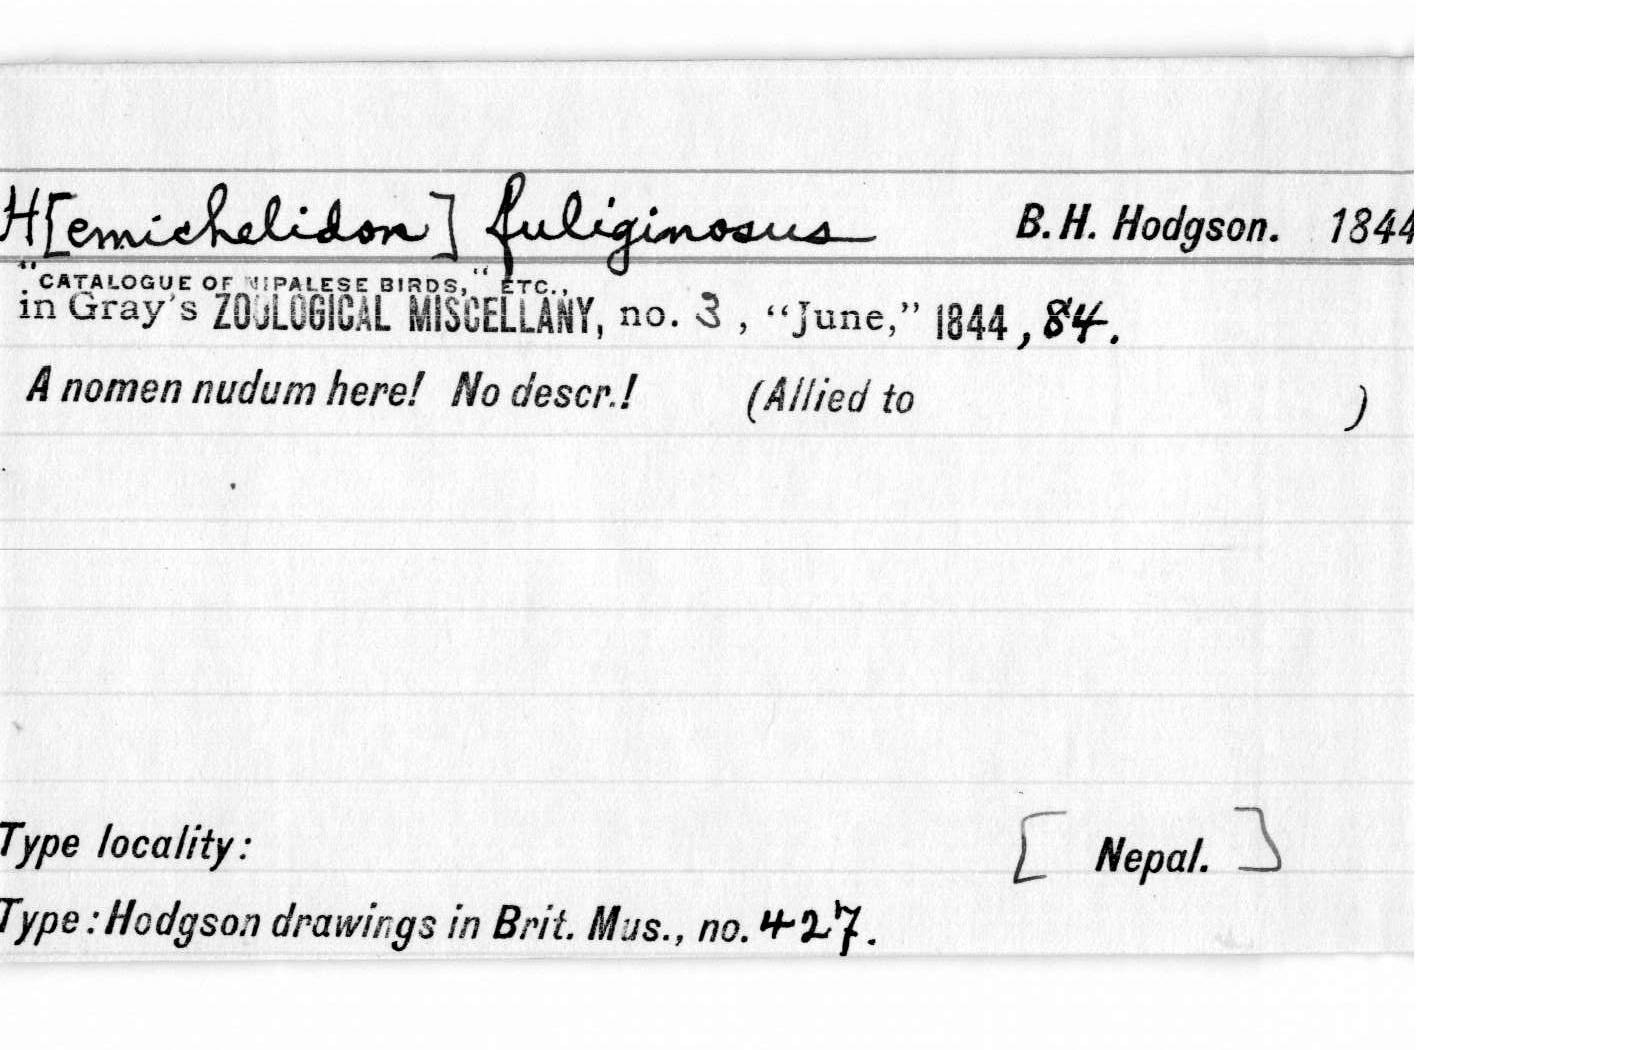 H[emichelidon] fuliginosus B. H. Hodgson. 1844
"CATALOGUE OF NIPALESE BIRDS," ETC.,
in Gray's ZOOLOGICAL MISCELLANY, no. 3, "June," 1844, 84.
A nomen nudum here! No descr.! (Allied to )
Type locality: [Nepal.]
Type: Hodgson drawings in Brit. Mus., no. 427.